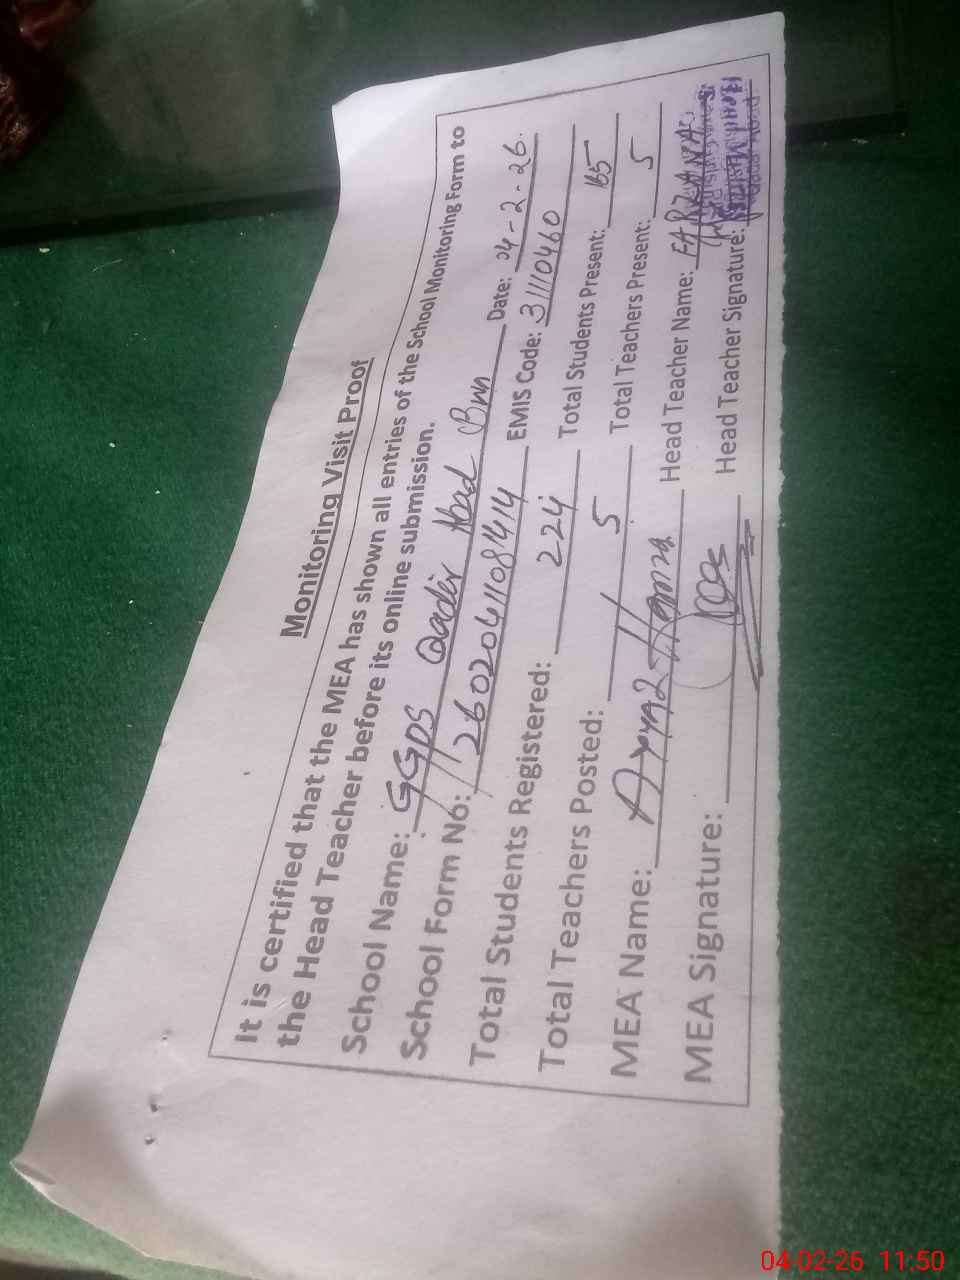 Monitoring Visit Proof
It is certified that the MEA has shown all entries of the School Monitoring Form to
the Head Teacher before its online submission.
School Name: GGPS Qaadir Abad Bwn Date: 04-2-26.
School Form No: 26020411081414 EMIS Code: 31110460
Total Students Registered: 224 Total Students Present: 165
Total Teachers Posted: 5 Total Teachers Present: 5
MEA Name: Hamza Head Teacher Name: FARZANA
MEA Signature: Head Teacher Signature:
04-02-26 11:50